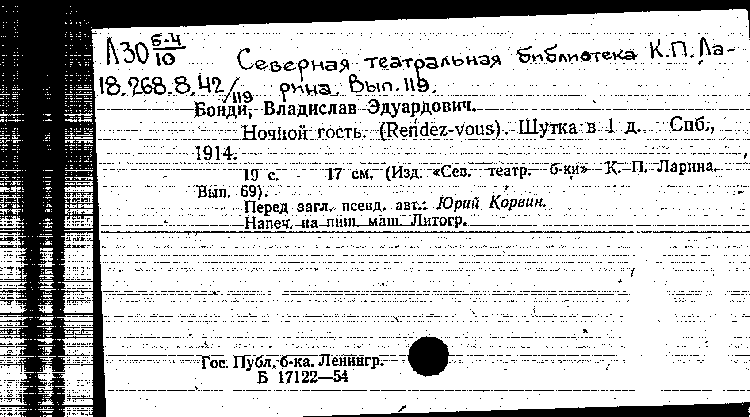 Л30 5-4/10 Северная театральная библиотека К.П. Ла-
18.268.8.42/119 рина. Вып. 119.
Бонди, Владислав Эдуардович.
Ночной гость. (Rendez-vous). Шутка в 1 д. Спб.,
1914.
19 с. 17 см. (Изд. «Сев. театр. б-ки» К. П. Ларина.
Вып. 69).
Перед загл. псевд. авт.: Юрий Корвин.
Напеч. на пиш. маш. Литогр.
Гос. Публ. б-ка. Ленингр.
Б 17122—54